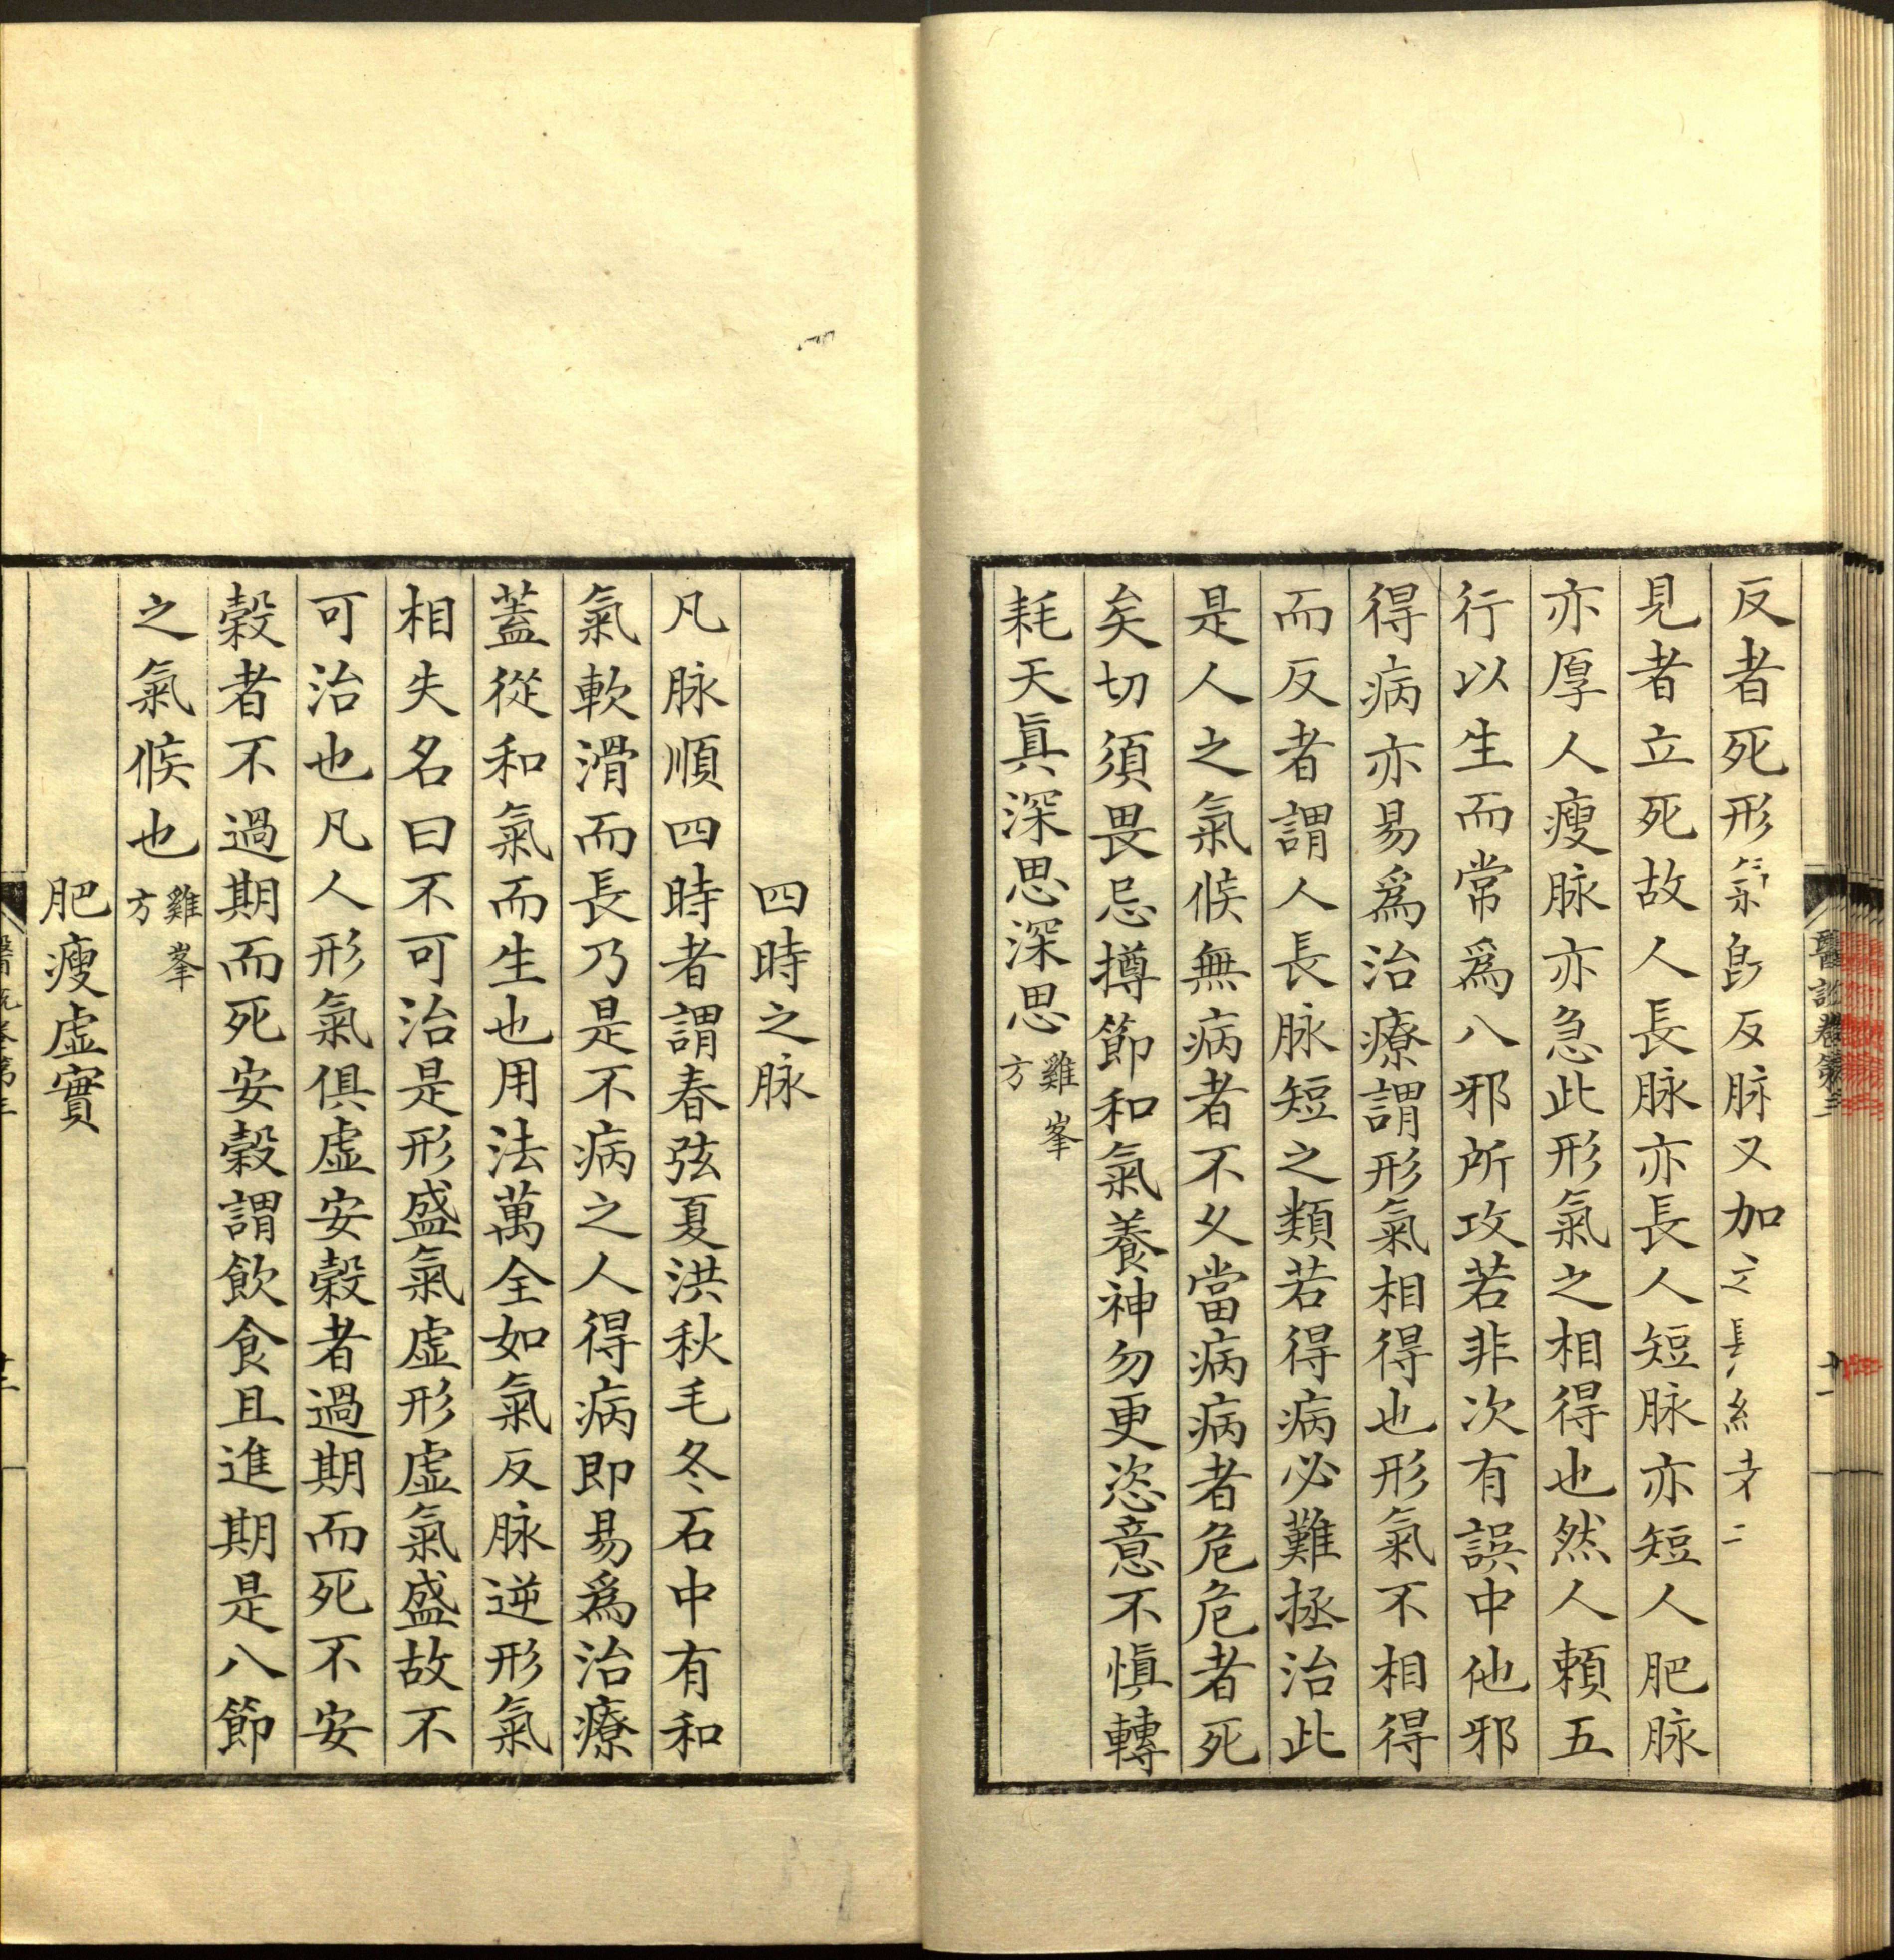 反者死形氣既反脉又加
見者立死故人長脉亦長人短脉亦短人肥脉
亦厚人瘦脉亦急此形氣之相得也然人賴五
行以生而常爲八邪所攻若非次有誤中他邪
得病亦易爲治療謂形氣相得也形氣不相得
而反者謂人長脉短之類若得病必難拯治此
是人之氣候無病者不乆當病病者危危者死
矣切須畏忌撙節和氣養神勿更恣意不愼轉
耗天眞深思深思雞峯方
四時之脉
凡脉順四時者謂春弦夏洪秋毛冬石中有和
氣軟滑而長乃是不病之人得病即易爲治療
蓋從和氣而生也用法萬全如氣反脉逆形氣
相失名曰不可治是形盛氣虛形虛氣盛故不
可治也凡人形氣俱虛安穀者過期而死不安
穀者不過期而死安穀謂飲食且進期是八節
之氣候也雞峯方
肥瘦虛實
醫說卷第三
十一